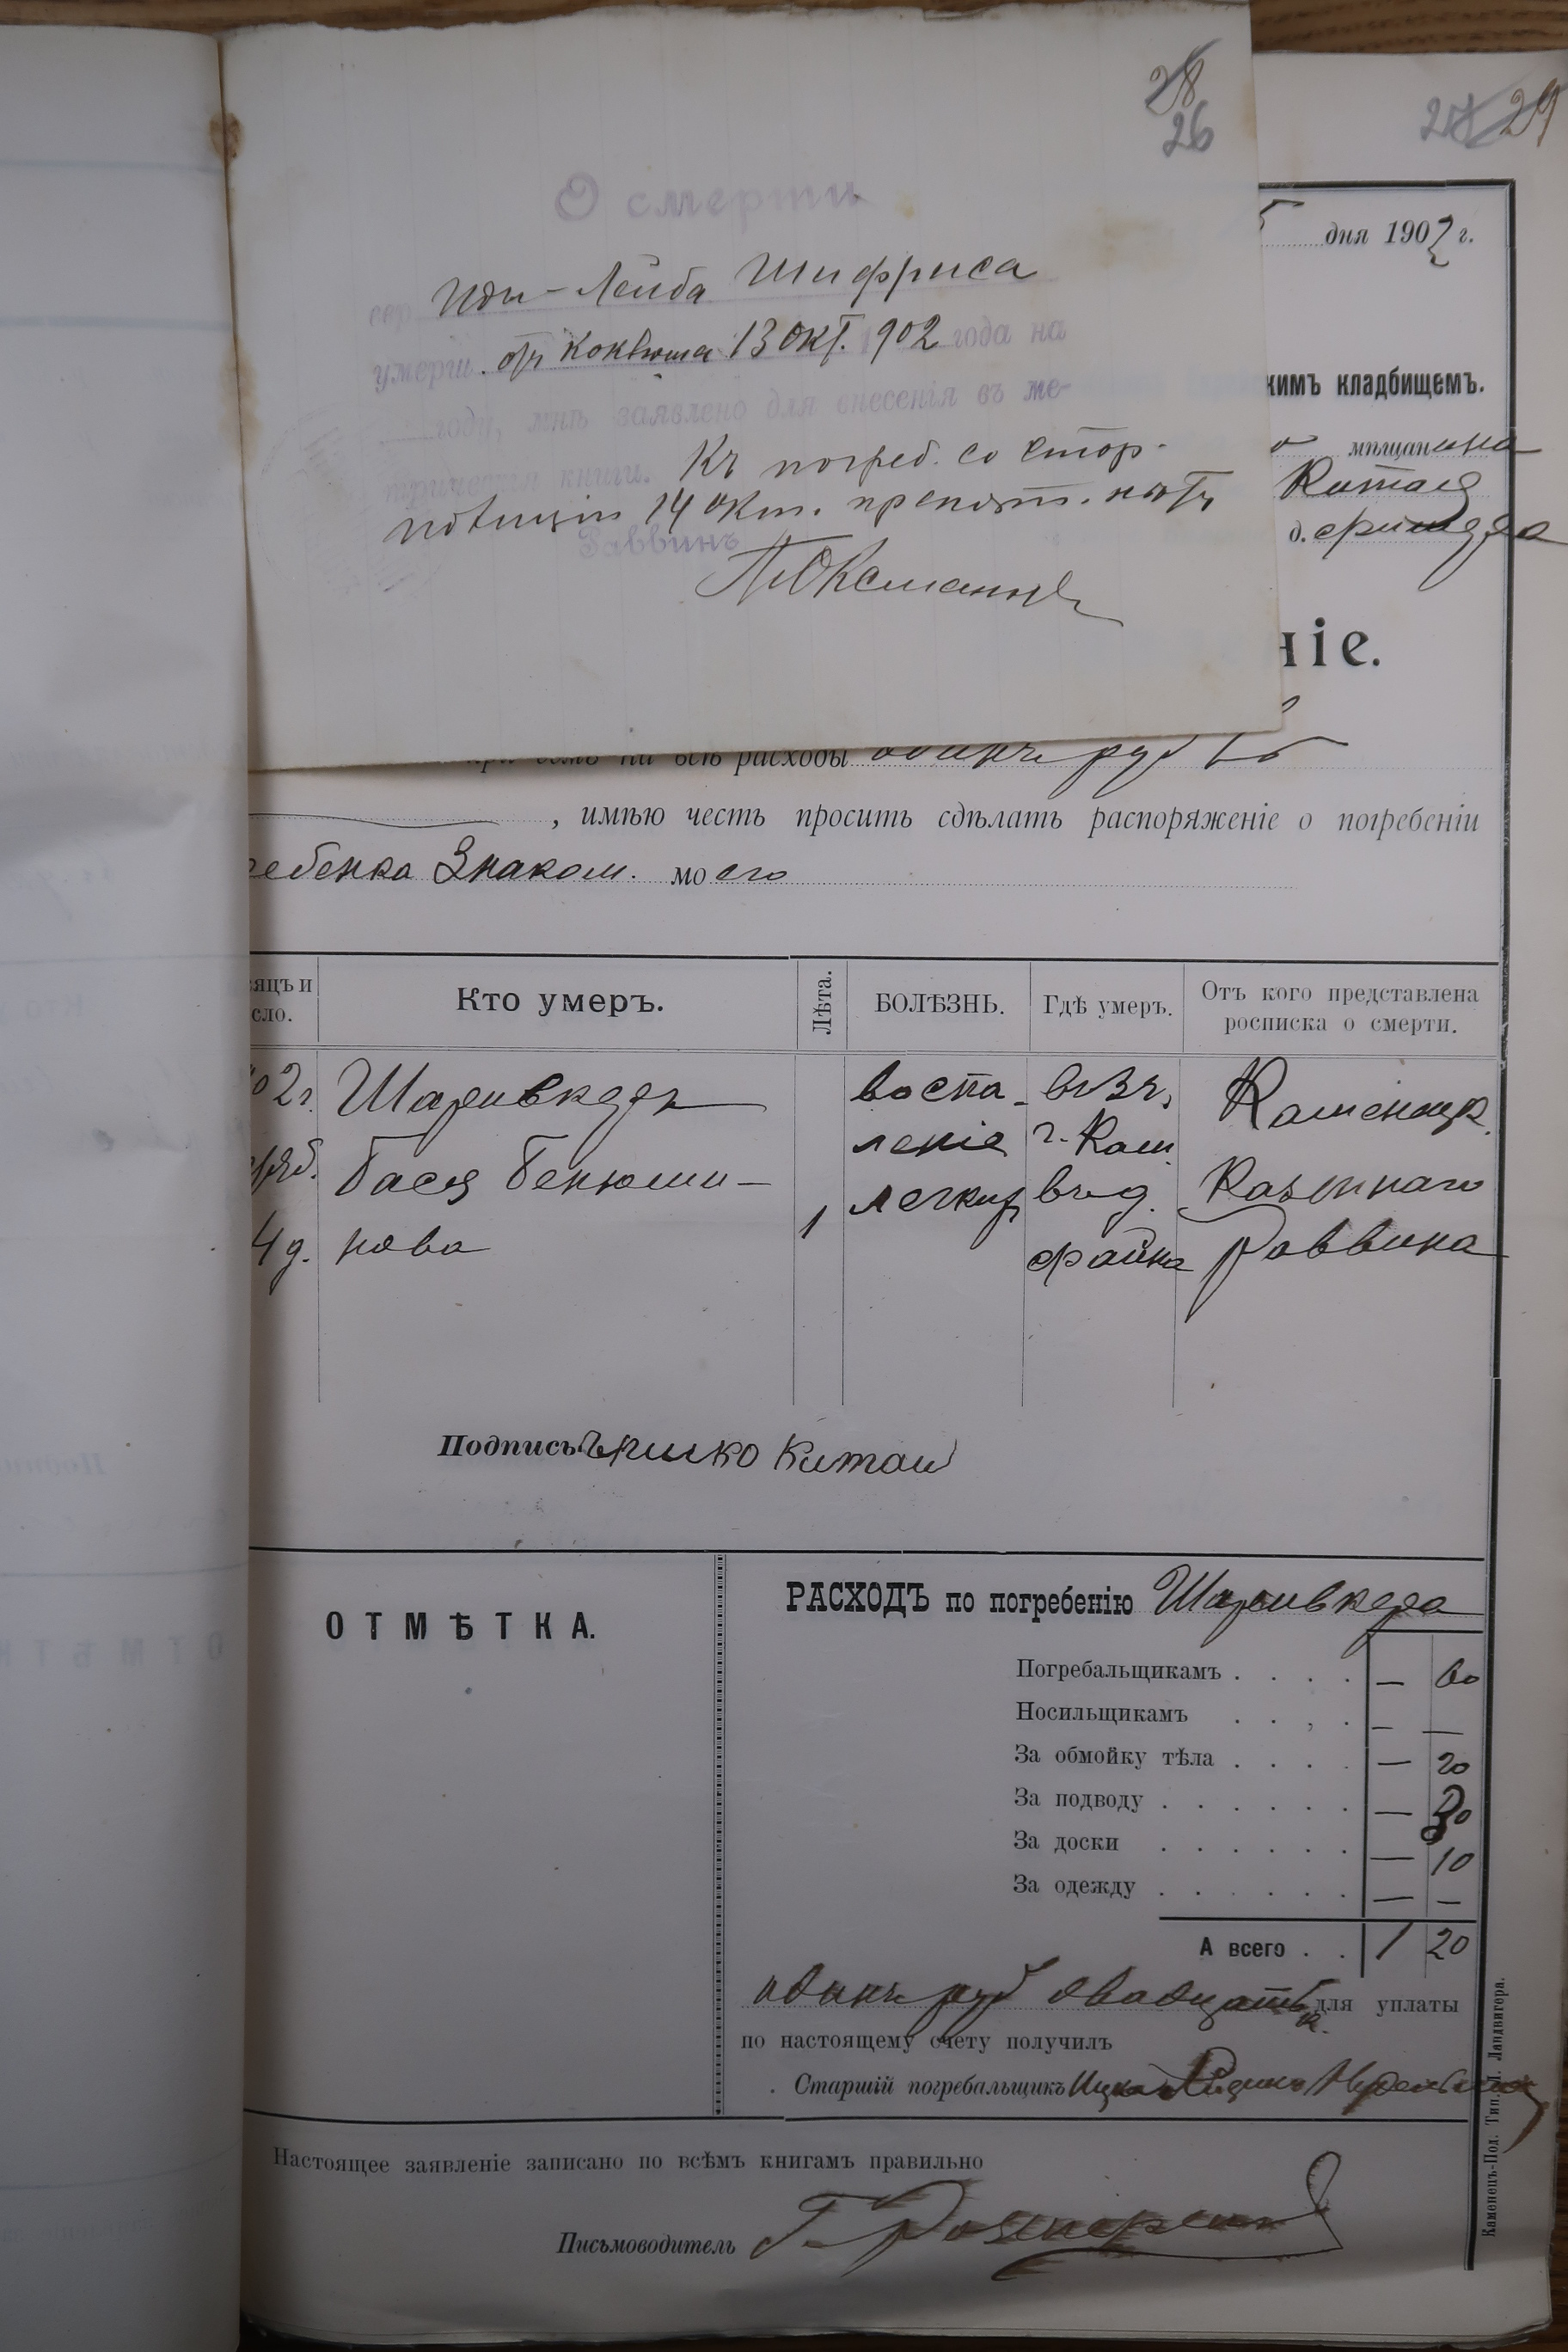 28
26
27 29
О смерти
евр. Иди-Лейба Шифриса
умерш. отъ коклюша 13 окт. 1902 года на
году, мнѣ заявлено для внесенія въ ме-
трическія книги. Къ погреб. со стор.
полиціи 14 окт. препятст. нѣтъ
Раввинъ
5 дня 1902 г.
кимъ кладбищемъ.
мѣщанина
Китая
д.
ніе.
при семъ на всѣ расходы одинъ руб
, имѣю честь просить сдѣлать распоряженіе о погребеніи
ребенка Знаком. моего
сяцъ и
сло.
Кто умеръ.
Лѣта.
БОЛѢЗНЬ.
Гдѣ умеръ.
Отъ кого представлена
росписка о смерти.
02 г.
4 д.
Шаривкеръ
Бася Бенюми-
нова
1
воспа-
леніе
легкихъ
г. Кам.
въ д.
файна
Каменецк.
Казеннаго
Раввина
Подпись Ицко Китай
ОТМѢТКА.
РАСХОДЪ по погребенію Шаривкера
Погребальщикамъ . . . . — 60
Носильщикамъ . . , . — —
За обмойку тѣла . . . . — 20
За подводу . . . . . . — 30
За доски . . . . . . — 10
За одежду . . . . . . — —
А всего . . 1 20
одинъ руб двадцать к. для уплаты
по настоящему счету получилъ
Старшій погребальщикъ Ицко
Настоящее заявленіе записано по всѣмъ книгамъ правильно
Письмоводитель
Каменецъ-Под. Тип. Л. Ландвигера.